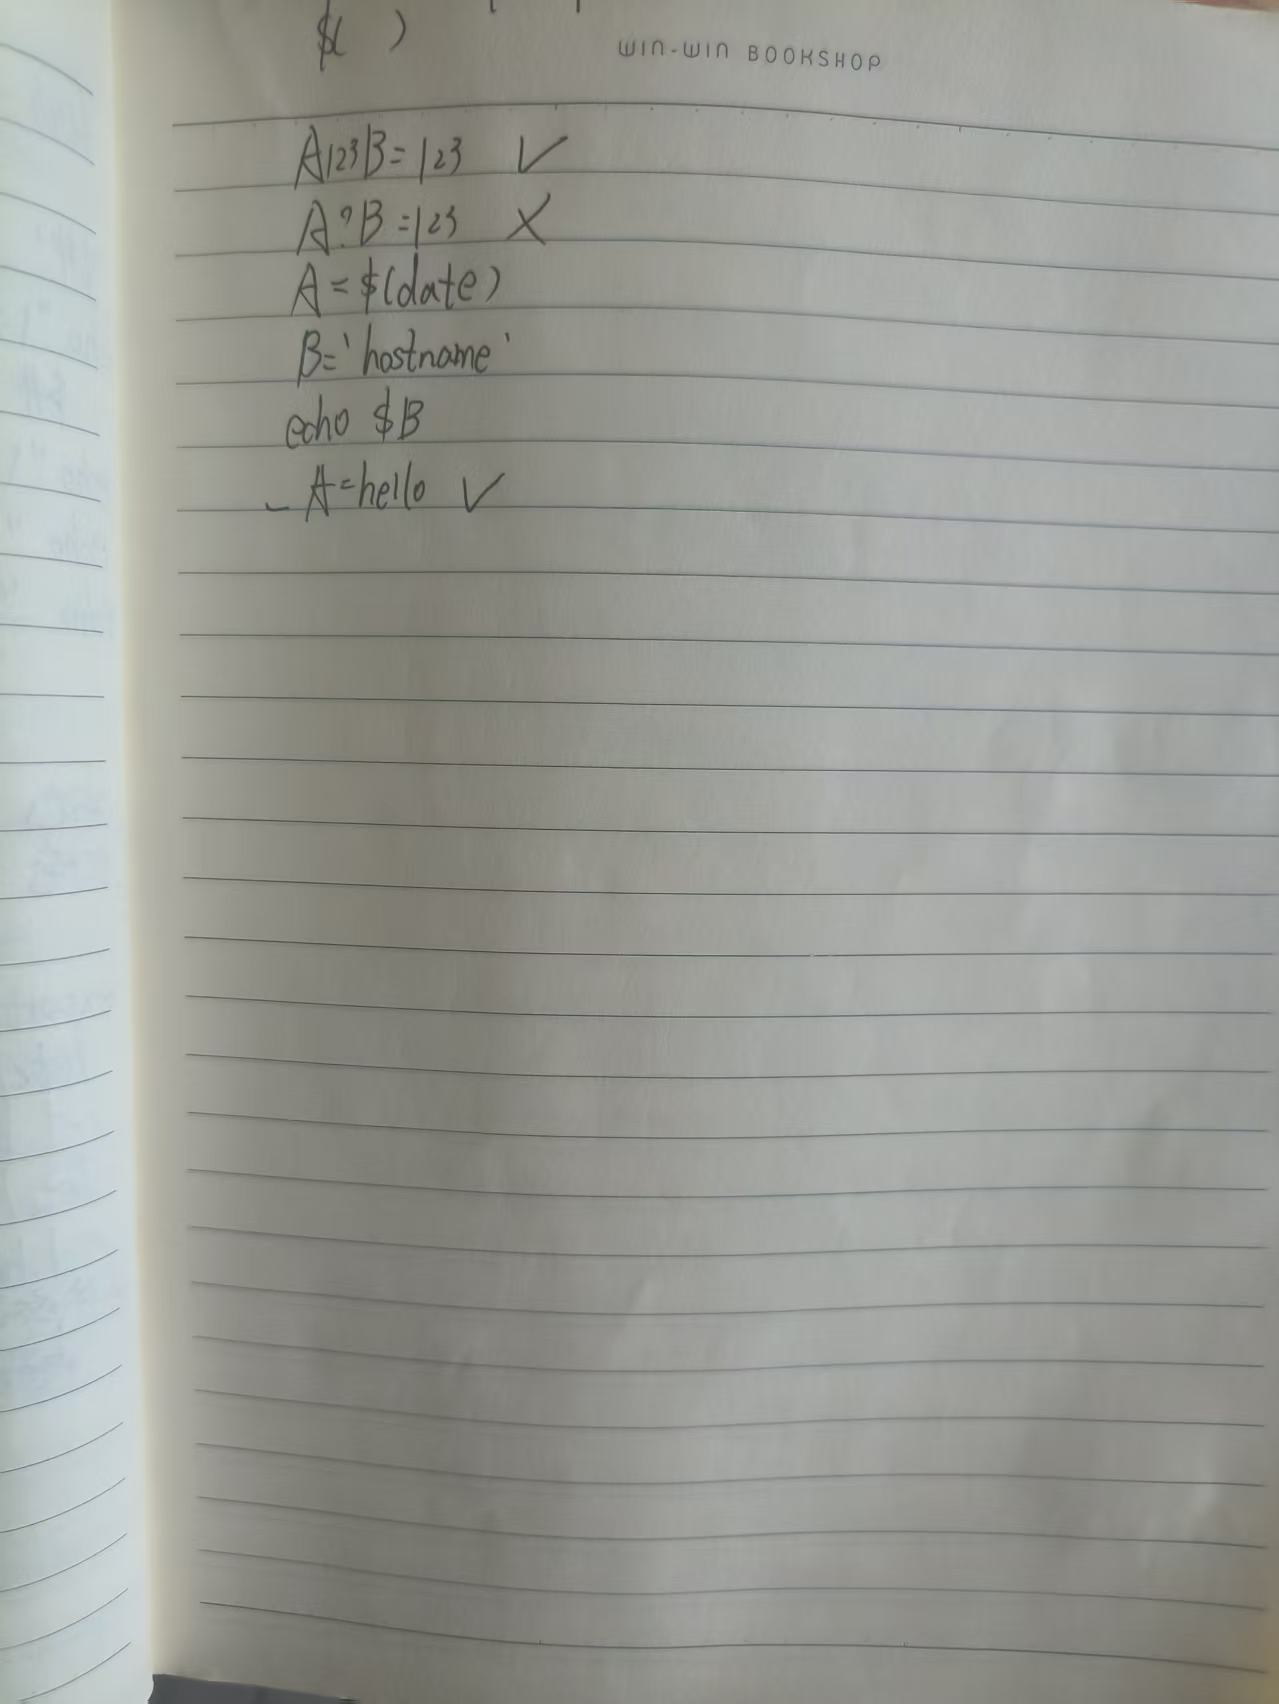 $( )
WIN-WIN BOOKSHOP
A123B=123 ✓
A?B=123 X
A=$(date)
B=`hostname`
echo $B
_A=hello ✓